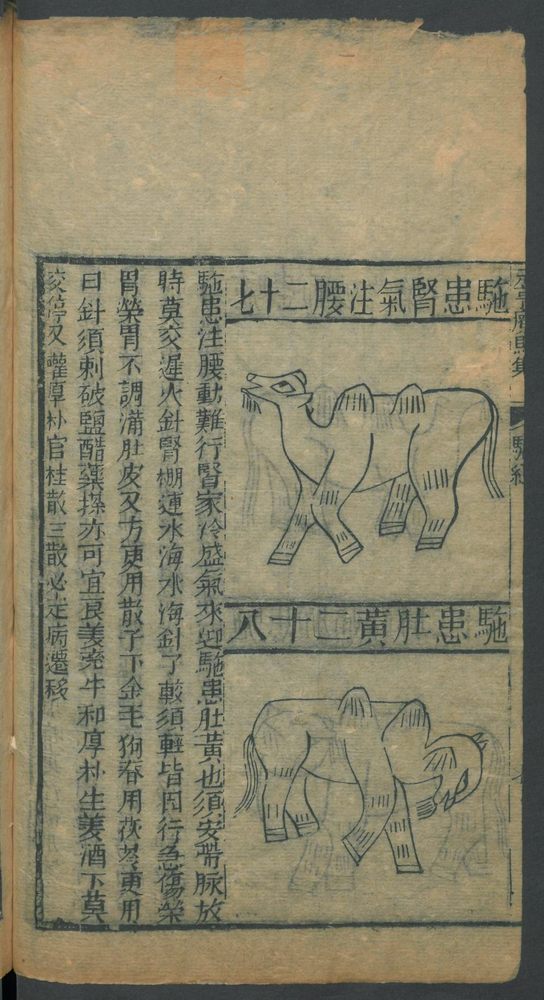 駞經
駞患腎氣注腰二十七
駞患肚黄二十八
駞患注腰動難行腎家冷盛氣來迎駞患肚黄也須安帶脉放
時莫交遲火針腎棚連水海水海針了較須輕皆因行急傷榮
胃榮胃不調滿肚皮又方更用散子下金毛狗脊用茯苓更用
日針須刺破鹽醋藥搽亦可宜良姜牽牛和厚朴生姜酒下莫
交停又灌厚朴官桂散三散必定病遷移